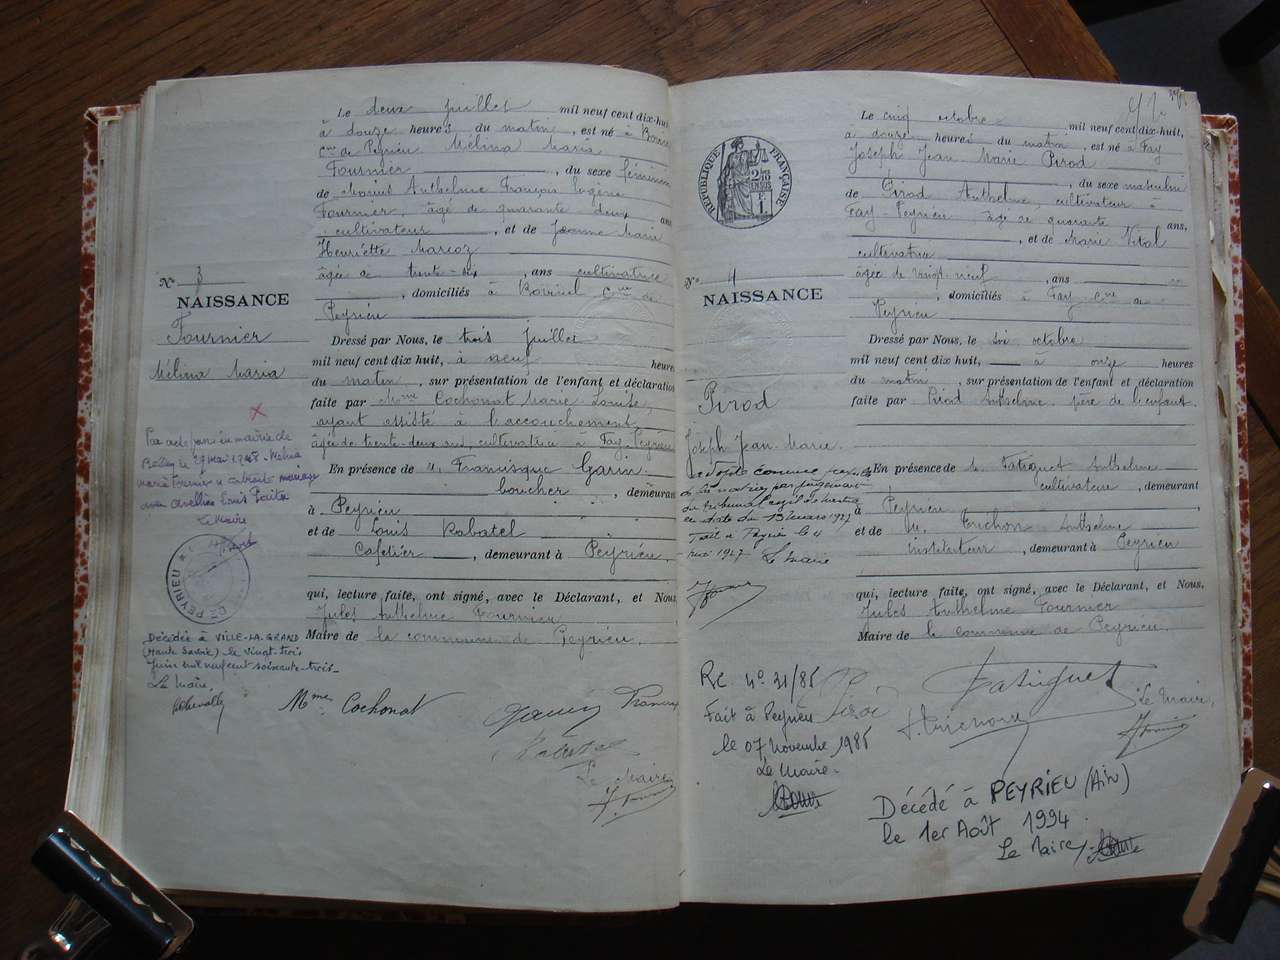 Le deux juillet mil neuf cent dix-huit,
à douze heures du matin, est né à
cne de Peyrieu Mélina Maria
Fournier, du sexe féminin
de Marius Anthelme François Eugène
Fournier, âgé de quarante deux ans
cultivateur, et de Jeanne Marie
Henriette Marcoz
âgée de trente-six, ans cultivatrice
, domiciliés à cne de
Peyrieu
Dressé par Nous, le trois juillet
mil neuf cent dix huit, à neuf heures
du matin, sur présentation de l'enfant et déclaration
faite par Mme Cochonat Marie Louise,
ayant assisté à l'accouchement,
âgée de trente-deux ans, cultivatrice à Fay, Peyrieu
En présence de M. Francisque Garin
boucher, demeurant
à Peyrieu
et de Louis Rabatel
Cafetier, demeurant à Peyrieu,
qui, lecture faite, ont signé, avec le Déclarant, et Nous
Jules Anthelme Fournier
Maire de la commune de Peyrieu.
Mme Cochonat
Le Maire
N° 3
NAISSANCE
Fournier
Mélina Maria
Par acte en mairie de
Belley le 27 mai 1948 Mélina
Maria Fournier a contracté mariage
avec Louis
Le Maire
DE PEYRIEU
Décédée à VILLE-LA-GRAND
(Haute Savoie) le vingt-trois
Juin mil neuf cent soixante-trois
Le Maire
91
Le cinq octobre mil neuf cent dix-huit,
à douze heures du matin, est né à Fay
Joseph Jean Marie Pirod
, du sexe masculin
de Pirod Anthelme, cultivateur à
Fay-Peyrieu âgé de quarante ans,
, et de Marie Vital
cultivatrice
âgée de vingt-neuf, ans
, domiciliés à Fay cne de
Peyrieu
Dressé par Nous, le six octobre
mil neuf cent dix huit, à onze heures
du matin, sur présentation de l'enfant et déclaration
faite par Pirod Anthelme père de l'enfant.
En présence de M. Fatiguet Anthelme
cultivateur, demeurant
à Peyrieu
et de M. Trichon Anthelme
instituteur, demeurant à Peyrieu
qui, lecture faite, ont signé, avec le Déclarant, et Nous,
Jules Anthelme Fournier
Maire de la commune de Peyrieu.
RÉPUBLIQUE FRANÇAISE
2/10
EN SUS
1 F
N° 4
NAISSANCE
Pirod
Joseph Jean Marie
Adopté comme pupille
de la nation par jugement
du tribunal civil de
en date du 15 mars 1927
Fait à Peyrieu le 4
mai 1927 Le Maire
Pirod
Fatiguet
Le Maire,
Rc n° 31/85
Fait à Peyrieu
le 07 Novembre 1985
Le Maire
Décédé à PEYRIEU (Ain)
le 1er Août 1994
Le Maire,